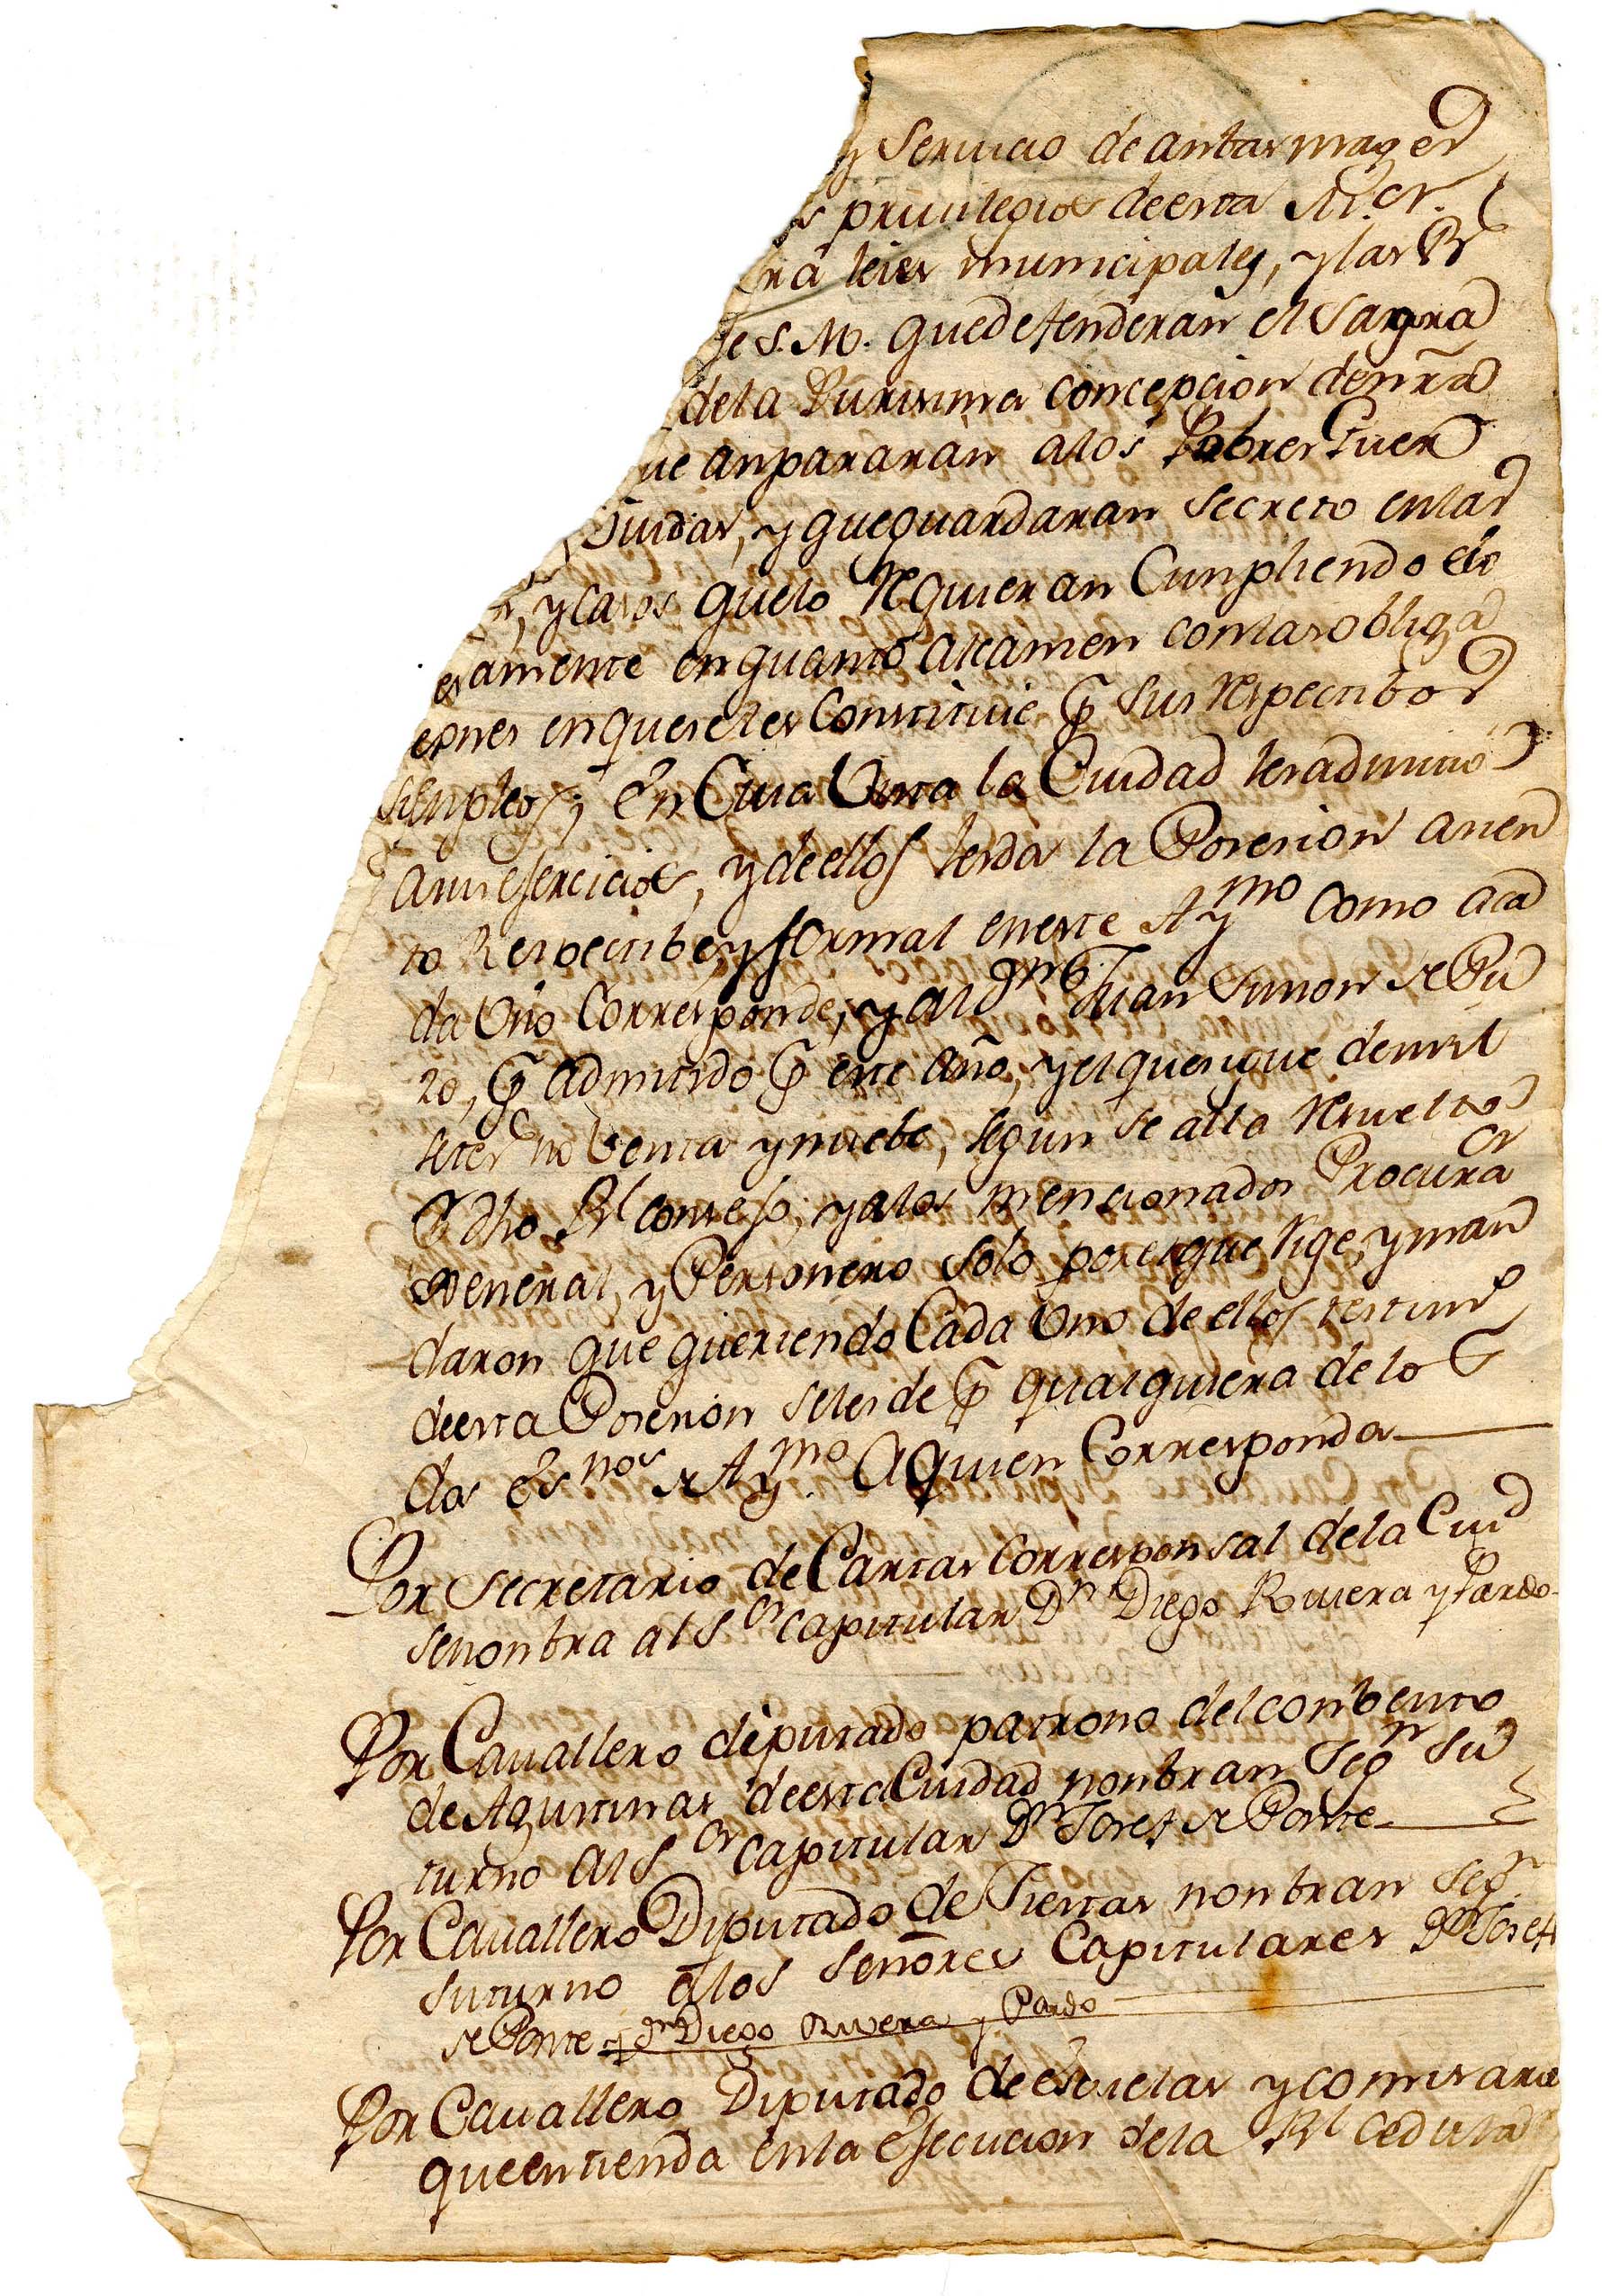 y Servicio de anbas mages
s privilegios de esta M. N.
ra leies municipales, y las Rs
de S. M. que defenderan el Sagra
de la Purisima Concepcion de nrã
ue anpararan a los Pobres Huer
Viudas, y que guardaran Secreto en las
, y casos que lo requieran Cunpliendo
esamente en quanto alcamen con las obliga
ciones en que se les Constituie p Sus respectibos
Enpleos; En Cuia Vista la Ciudad les admitió
a sus ejercicios, y de ellos les da la Posesion asien
to Respectibe, y formal en este Aymo como a ca
da Uno Corresponde; y al dn Juan Simon de Pu
zo, p admitido p este año, y el que sigue de mil
setecs no Venta y nuebe, segun se alla resuelto
P dho Rl Consejo; y a los mencionados Procurar
General, y Personero Solo por el que rige, y man
daron que queriendo Cada Uno de ellos testimo
de esta Posesion se les de p qualquiera de lo
dos Esnos de Aymo a quien Corresponda
Por Secretario de Cartas Corresponsal de la Ciud
se nonbra al Sor Capitular Dn Diego Rivera y Pardo
Por Cavallero diputado patrono del conbento
de Agustinas de esta Ciudad nonbran Segn Su
turno al Sor Capitular Dn Josef de Ponte
Por Cavallero Diputado de Fiestas nonbran Segn
su turno a los Señores Capitulares Dn Josef
de Ponte y Dn Diego Rivera y Pardo
Por Cavallero Diputado de Escuelas y comisario
que entienda en la Ejecucion de la Rl Cedula